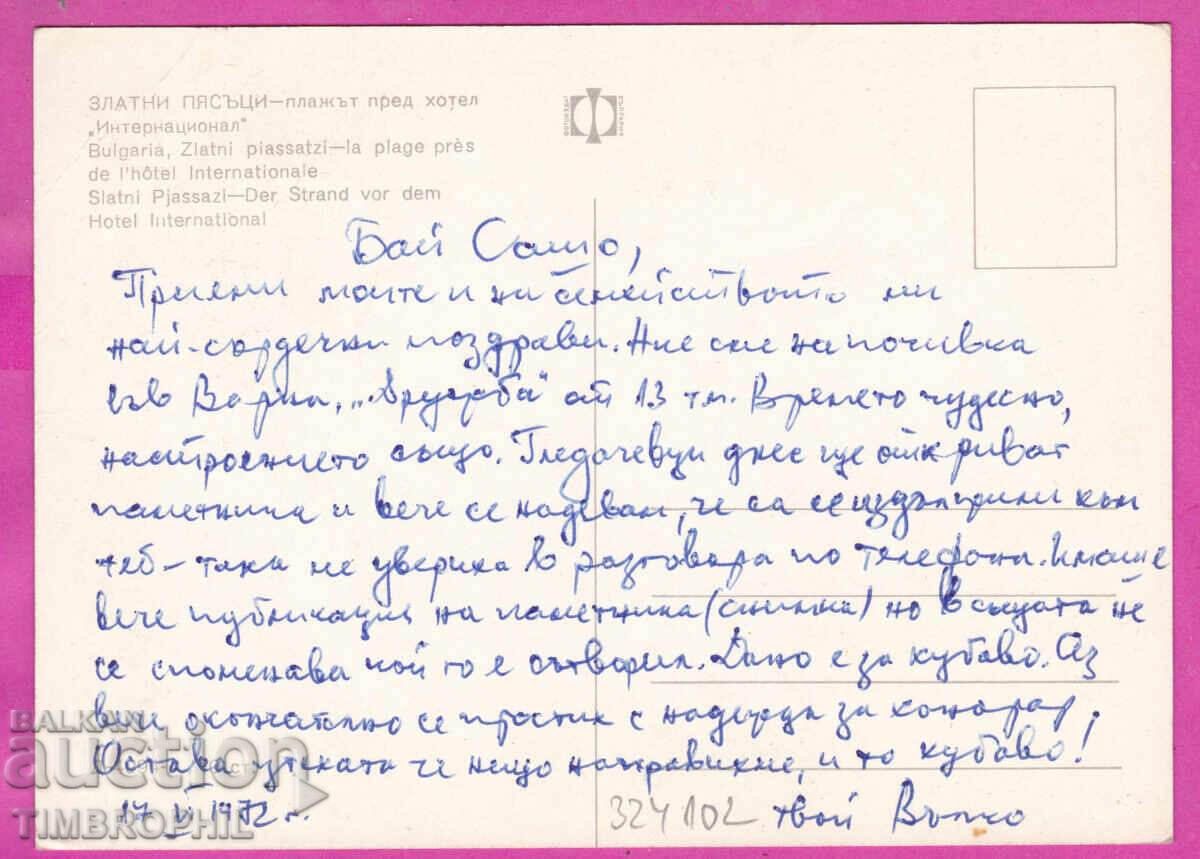 ЗЛАТНИ ПЯСЪЦИ—плажът пред хотел
„Интернационал"
Bulgaria, Zlatni piassatzi—la plage près
de l'hôtel Internationale
Slatni Pjassazi—Der Strand vor dem
Hotel International
ФОТОИЗДАТ БЪЛГАРИЯ
Бай Сашо,
Приеми моите и на семейството ми
най-сърдечни поздрави. Ние сме на почивка
във Варна, „Дружба" от 13 т.м. Времето чудесно,
настроението също. Гледачевци днес ще откриват
паметника и вече се надевам, че са се издължили към
теб – така ме увериха в разговора по телефона. Имаше
вече публикация на паметника (снимка) но в същата не
се споменава кой го е сътворил. Дано е за хубаво. Аз
вече окончателно се простих с надежда за хонорар.
Остава утехата че нещо направихме, и то хубаво!
17 VI 1972 г.
324102
твой Вълчо
BALKAN
auction
TIMBROPHIL